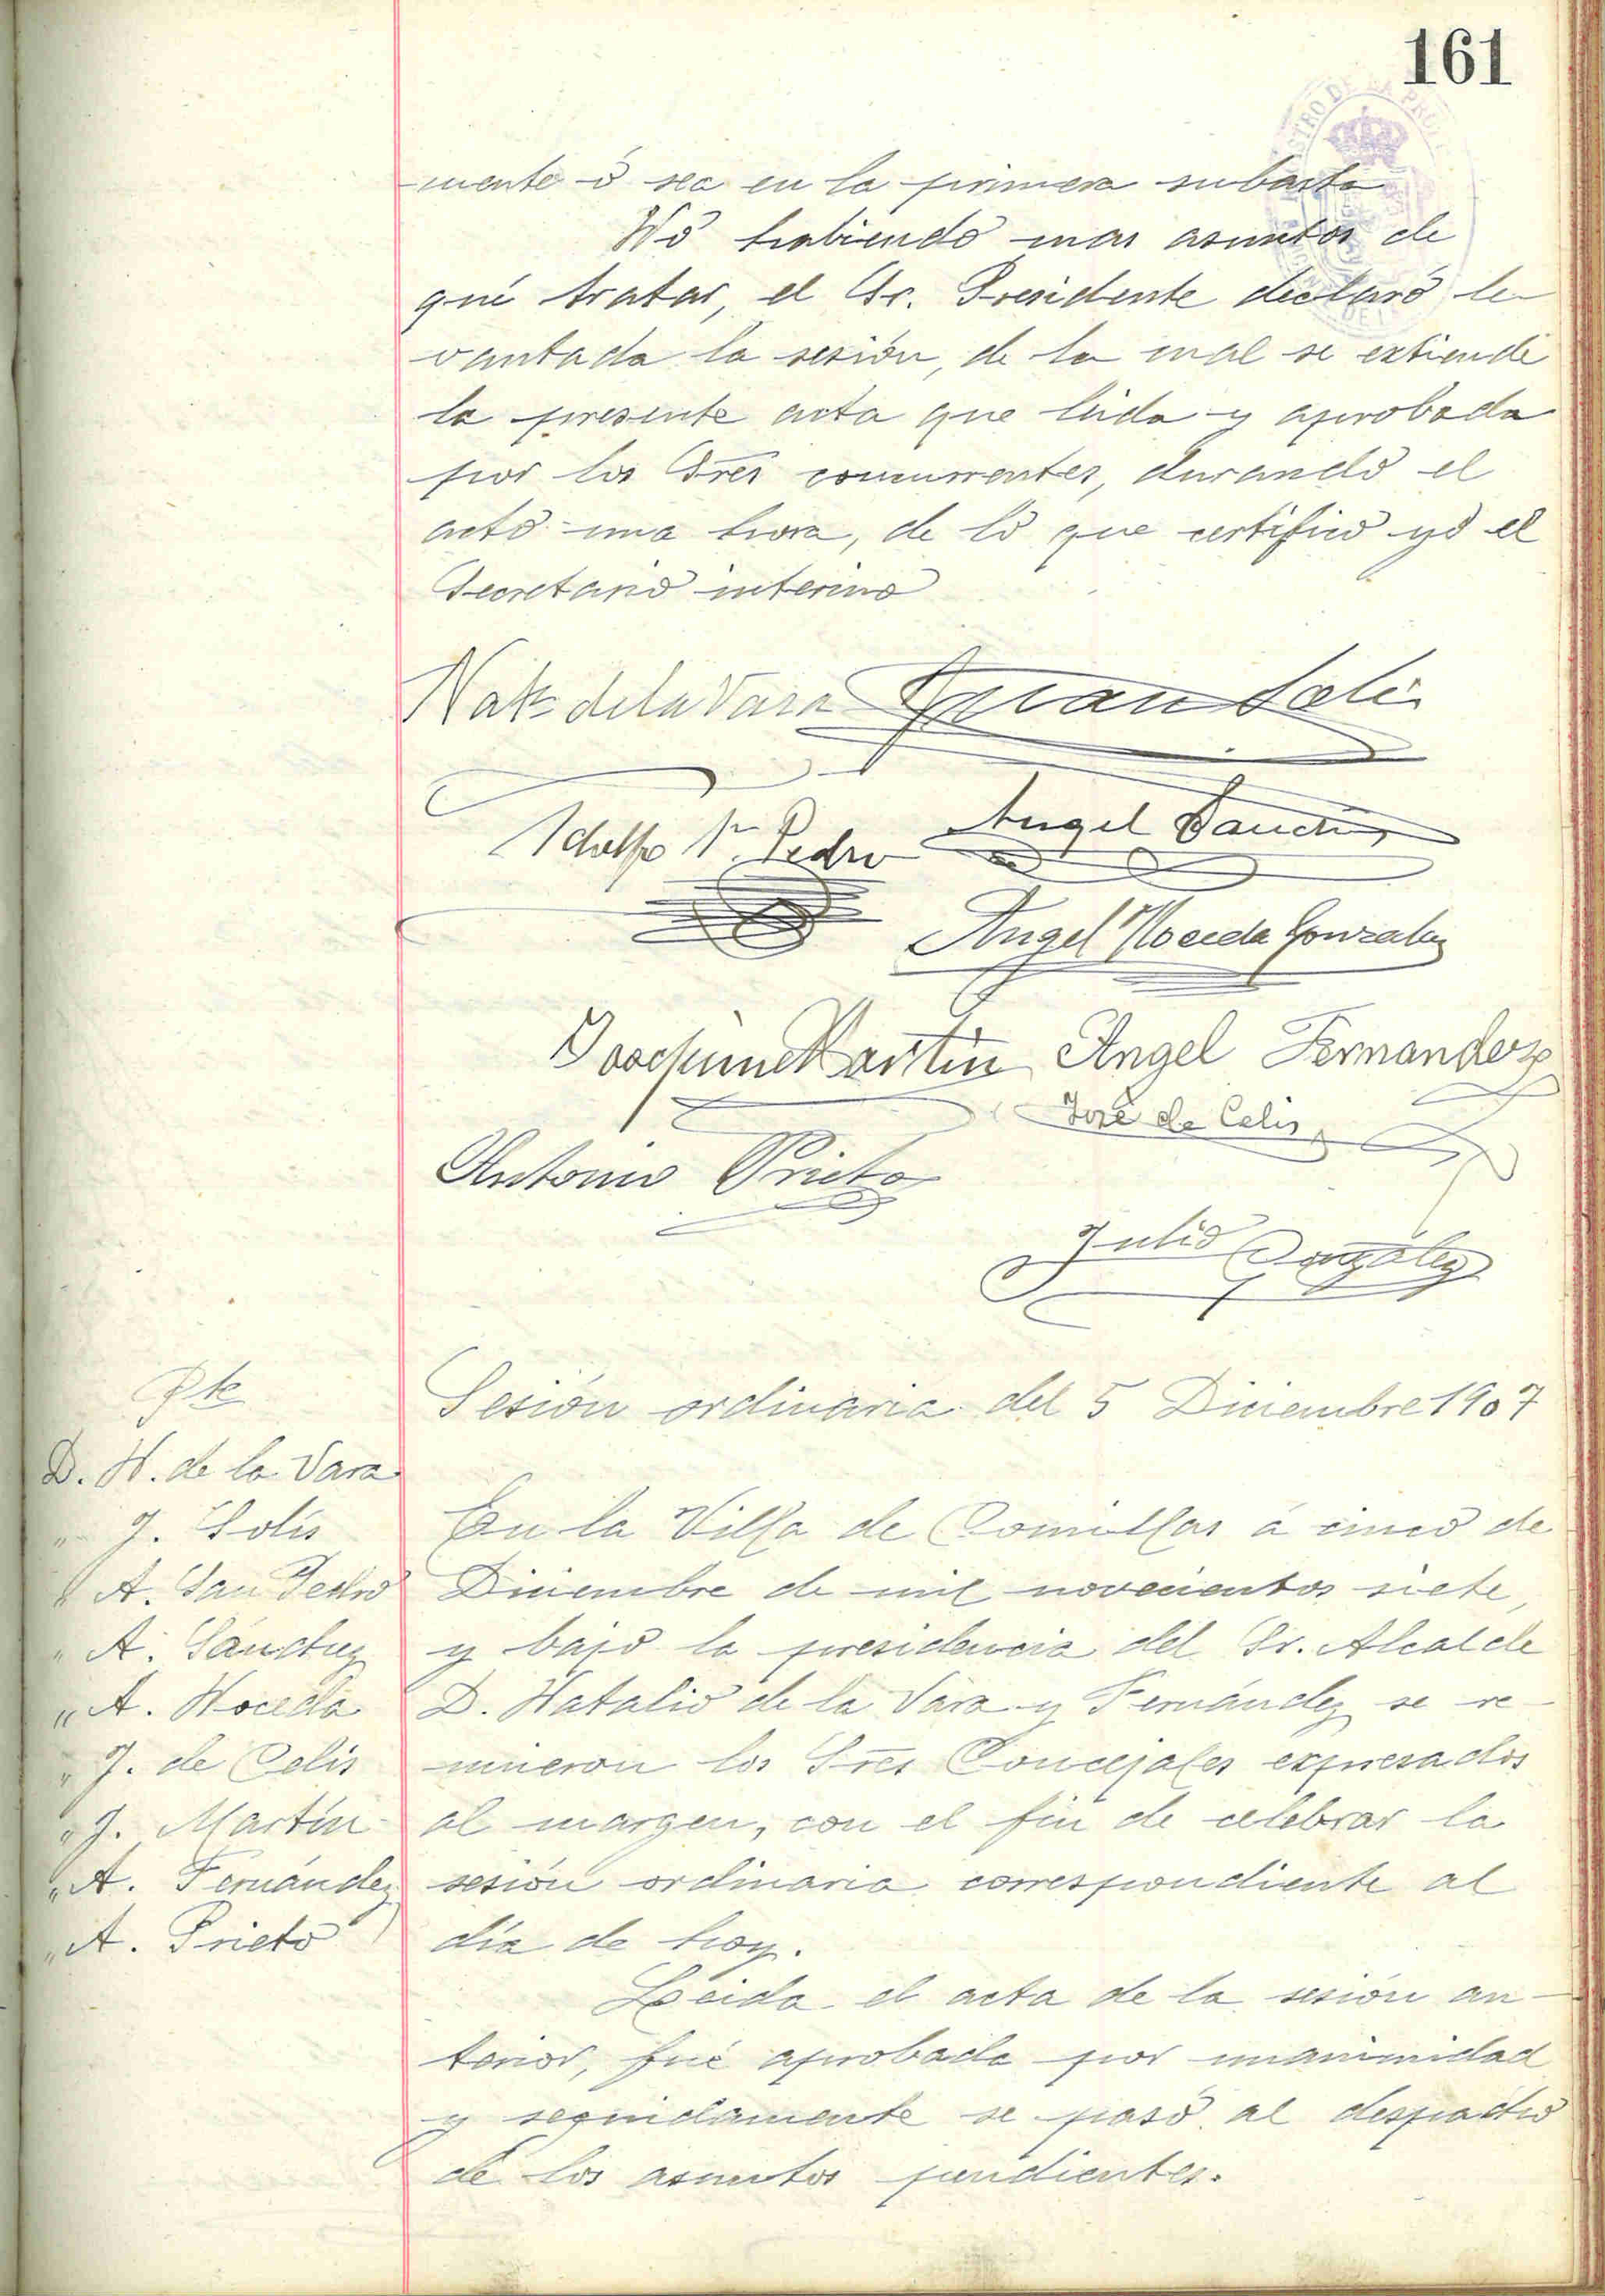 161
mente ó sea en la primera subasta
No habiendo mas asuntos de
qué tratar, el Sr. Presidente declaró le-
vantada la sesión, de la cual se extiende
la presente acta que leida y aprobada
por los Sres concurrentes, durando el
acto una hora, de lo que certifico yo el
Secretario interino
Nat. de la Vara Juan Solis
Adolfo Sn. Pedro Angel Sanchez
Angel Noceda Gonzalez
Joachin Martin Angel Fernandez
José de Celis
Antonio Prieto
Julio Gonzalez
Pte
D. N. de la Vara
" J. Solís
" A. San Pedro
" A. Sánchez
" A. Noceda
" J. de Celis
" J. Martín
" A. Fernández
" A. Prieto
Sesión ordinaria del 5 Diciembre 1907
En la Villa de Comillas á cinco de
Diciembre de mil novecientos siete,
y bajo la presidencia del Sr. Alcalde
D. Natalio de la Vara y Fernández se re-
unieron los Sres Concejales expresados
al margen, con el fin de celebrar la
sesión ordinaria correspondiente al
día de hoy.
Leida el acta de la sesión an-
terior, fué aprobada por unanimidad
y seguidamente se pasó al despacho
de los asuntos pendientes.